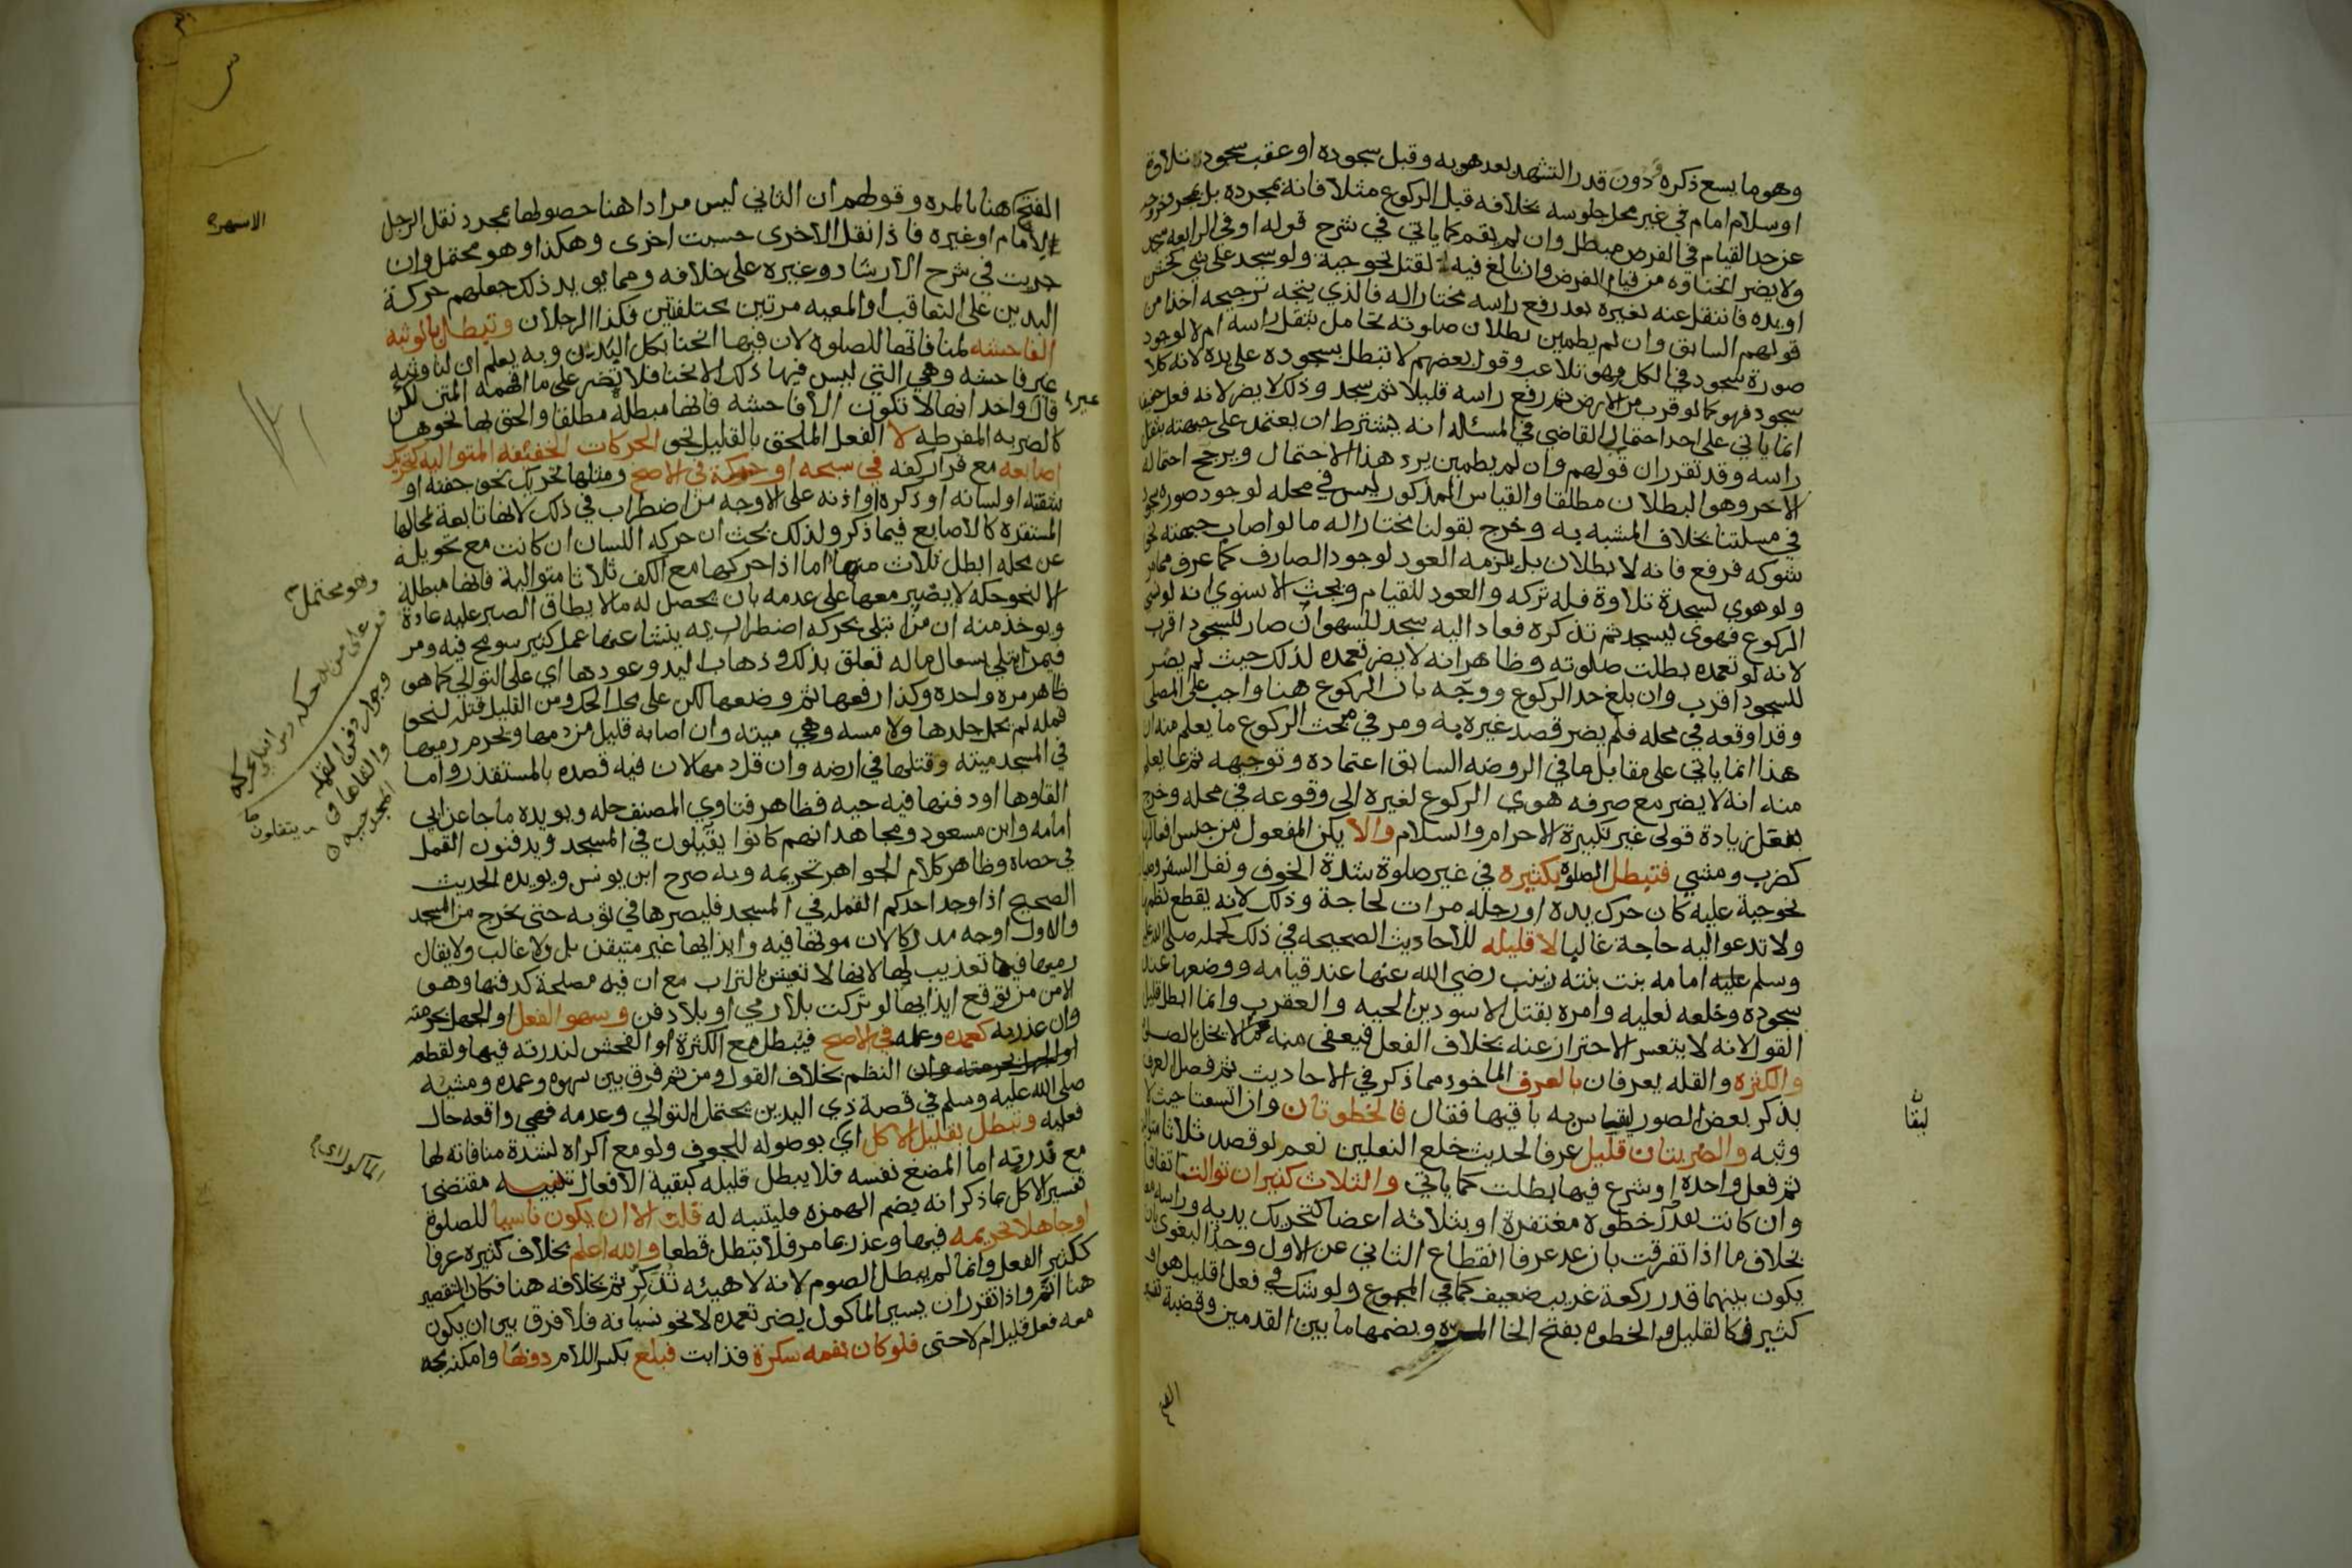 وهو ما يسع ذكره دون قدر التشهد بعد هويه وقبل سجوده او عقب سجود تلاوة
او سلام امام في غير محل جلوسه بخلافه قبل الركوع مثلا فانه بمجرده بل بمجرد خروجه
عن حد القيام في الفرض مبطل وان لم يقم كما ياتي في شرح قوله او في الرابعة سجد
ولا يضر انحناوه من قيام الفرض وان بالغ فيه لقتل نحو حية ولو سجد على شي خشن
او يده فانتقل عنه لغيره بعد رفع راسه مختارا له فالذي يتجه ترجيحه اخذا من
قولهم السابق وان لم يطمين بطلان صلوته تحامل بثقل راسه ام لا لوجود
صورة سجود في الكل وهو تلاعب وقول بعضهم لا تبطل بسجوده على يده لانه كلا
سجود فهو كما لو قرب من الارض ثم رفع راسه قليلا ثم سجد وذلك لا يضر لانه فعل خفيف
انما ياتي على احد احتمالي القاضي في المسئله انه يشترط ان يعتمد على جبهته بثقل
راسه وقد تقرر ان قولهم وان لم يطمين يرد هذا الاحتمال ويرجح احتماله
الاخر وهو البطلان مطلقا والقياس المذكور ليس في محله لوجود صورة سجود
في مسلتنا بخلاف المشبه به وخرج بقولنا مختارا له ما لو اصاب جبهته نحو
شوكه فرفع فانه لا بطلان بل يلزمه العود لوجود الصارف كما عرف مما مر
ولو هوى لسجدة تلاوة فله تركه والعود للقيام وبحث الاسنوي انه لو نسي
الركوع فهوى ليسجد ثم تذكره فعاد اليه سجد للسهو ان صار للسجود اقرب
لانه لو تعمده بطلت صلوته وظاهر انه لا يضر تعمده لذلك حيث لم يصر
للسجود اقرب وان بلغ حد الركوع ووجه بان الركوع هنا واجب على المصلى
وقد اوقعه في محله فلم يضر قصد غيره به ومر في مبحث الركوع ما يعلم منه ان
هذا انما ياتي على مقابل ما في الروضه السابق اعتماده وتوجيهه ثم بما يعلم
منه انه لا يضر مع صرفه هوي الركوع لغيره الى وقوعه في محله وخرج
بفعل زيادة قولي غير تكبيرة الاحرام والسلام والا يكن المفعول من جنس افعالها
كضرب ومشي فتبطل الصلوة بكثيره في غير صلوة شدة الخوف ونفل السفر وصيال
نحو حية عليه كان حرك يده او رجله مرات لحاجة وذلك لانه يقطع نظمها
ولا تدعو اليه حاجة غالبا لا قليله للاحاديث الصحيحه في ذلك كحمله صلى الله عليه
وسلم امامه بنت بنته زينب رضي الله عنها عند قيامه ووضعها عند
سجوده وخلعه نعليه وامره بقتل الاسودين الحيه والعقرب وانما ابطل قليل
القول لانه لا يتعسر الاحتراز عنه بخلاف الفعل فيعفى منه عما لا يخل بالصلوة
والكثره والقله يعرفان بالعرف الماخوذ مما ذكر في الاحاديث ثم فصل العرف
بذكر بعض الصور ليقاس به باقيها فقال فالخطوتان وان اتسعتا حيث لا
وثبه والضربتان قليل عرفا لحديث خلع النعلين نعم لو قصد ثلاثا متوالية
ثم فعل واحدة او شرع فيها بطلت كما ياتي والثلاث كثير ان توالت اتفاقا
وان كانت بقدر خطوه مغتفرة او بثلاثه اعضا كتحريك يديه وراسه معا
بخلاف ما اذا تفرقت بان عد عرفا انقطاع الثاني عن الاول وحد البغوى بان
يكون بينهما قدر ركعة غريب ضعيف كما في المجموع ولو شك في فعل اقليل هو او
كثير فكالقليل والخطوه بفتح الخا المره وبضمها ما بين القدمين وقضية تفسير
الفتح
لبقا
الفتح هنا بالمره وقولهم ان الثاني ليس مرادا هنا حصولها بمجرد نقل الرجل
للامام او غيره فاذا نقل الاخرى حسبت اخرى وهكذا وهو محتمل وان
جريت في شرح الارشاد وغيره على خلافه ومما يويد ذلك جعلهم حركة
اليدين على التعاقب او المعيه مرتين مختلفتين فكذا الرجلان وتبطل بالوثبه
الفاحشه لمنافاتها للصلوة لان فيها انحنا بكل البدن وبه يعلم ان لنا وثبه
غير فاحشه وهي التي ليس فيها ذلك الانحنا فلا تضر على ما افهمه المتن لكن
قال واحد انها لا تكون الا فاحشه فانها مبطله مطلقا والحق بها نحوها
كالضربه المفرطه لا الفعل الملحق بالقليل نحو الحركات الخفيفه المتواليه كتحريك
اصابعه مع قرار كفه في سبحه او حكة في الاصح ومثلها تحريك نحو جفنه او
شفته او لسانه او ذكره او اذنه على الاوجه من اضطراب في ذلك لانها تابعة لمحالها
المستقرة كالاصابع فيما ذكر ولذلك بحث ان حركه اللسان ان كانت مع تحويله
عن محله ابطل ثلاث منها اما اذا حركها مع الكف ثلاثا متوالية فانها مبطلة
الا لنحو حكة لا يصبر معها على عدمه بان يحصل له ما لا يطاق الصبر عليه عادة
ويوخذ منه ان من ابتلى بحركه اضطراريه ينشا عنها عمل كثير سومح فيه ومر
فيمن ابتلي بسعال ما له تعلق بذلك وذهاب اليد وعودها اي على التوالي كما هو
ظاهر مره واحده وكذا رفعها ثم وضعها لكن على محل الحك ومن القليل قتله لنحو
قمله لم يحمل جلدها ولا مسه وهي ميته وان اصابه قليل من دمها ويحرم رميها
في المسجد ميته وقتلها في ارضه وان قل دمها لان فيه قصده بالمستقذر واما
القاوها او دفنها فيه حيه فظاهر فتاوي المصنف حله ويويده ما جا عن ابي
امامه وابن مسعود ومجاهد انهم كانوا يقيلون في المسجد ويدفنون القمل
في حصاه وظاهر كلام الجواهر تحريمه وبه صرح ابن يونس ويويده الحديث
الصحيح اذا وجد احدكم القمله في المسجد فليصرها في ثوبه حتى يخرج من المسجد
والاول اوجه مدركا لان موتها فيه وايذايها غير متيقن بل ولا غالب ولا يقال
رميها فيه تعذيب لها لانها لا تعيش بالتراب مع ان فيه مصلحة كدفنها وهو
الامن من توقع ايذايها لو تركت بلا رمي او بلا دفن وسهو الفعل او الجهل بحرمته
وان عذر به كعمده وعلمه في الاصح فيبطل مع الكثرة او الفحش لندرته فيها ولقطعه
النظم بخلاف القول ومن ثم فرق بين سهوه وعمده ومشيه
صلى الله عليه وسلم في قصة ذي اليدين يحتمل التوالي وعدمه فهي واقعه حال
فعليه وتبطل بقليل الاكل اي بوصوله للجوف ولو مع اكراه لشدة منافاته لها
مع ندرته اما المضغ نفسه فلا يبطل قليله كبقية الافعال تنبيه مقتضى
تفسير الاكل بما ذكر انه بضم الهمزه فليتنبه له قلت الا ان يكون ناسيا للصلوة
او جاهلا تحريمه فيها وعذر بما مر فلا تبطل قطعا والله اعلم بخلاف كثيره عرفا
ككثير الفعل وانما لم يبطل الصوم لانه لا هيئه تذكر ثم بخلافه هنا فكان التقصير
هنا اتم واذا تقرر ان يسير الماكول يضر تعمده لا نحو نسيانه فلا فرق بين ان يكون
معه فعل قليل ام لا حتى فلو كان بفمه سكرة فذابت فبلع بكسر اللام ذوبها وامكنه مجه
الاشهر
غير
وهو محتمل
وجواز دفن القمله
والقاها في
المسجد حيه
يتفلون
الماكول اي